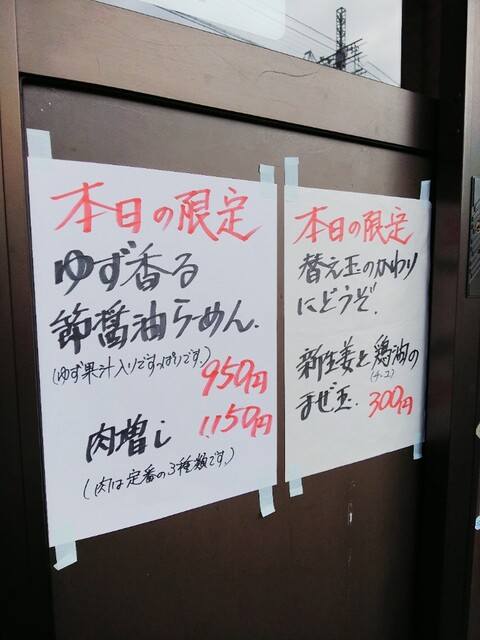 本日の限定
ゆず香る
節醤油らーめん.
(ゆず果汁入りですっぱりです。)
950円
肉増し 1,150円
(肉は定番の3種類です。)
本日の限定
替え玉のかわり
にどうぞ.
新生姜と鶏油の
(チーユ)
まぜ玉. 300円